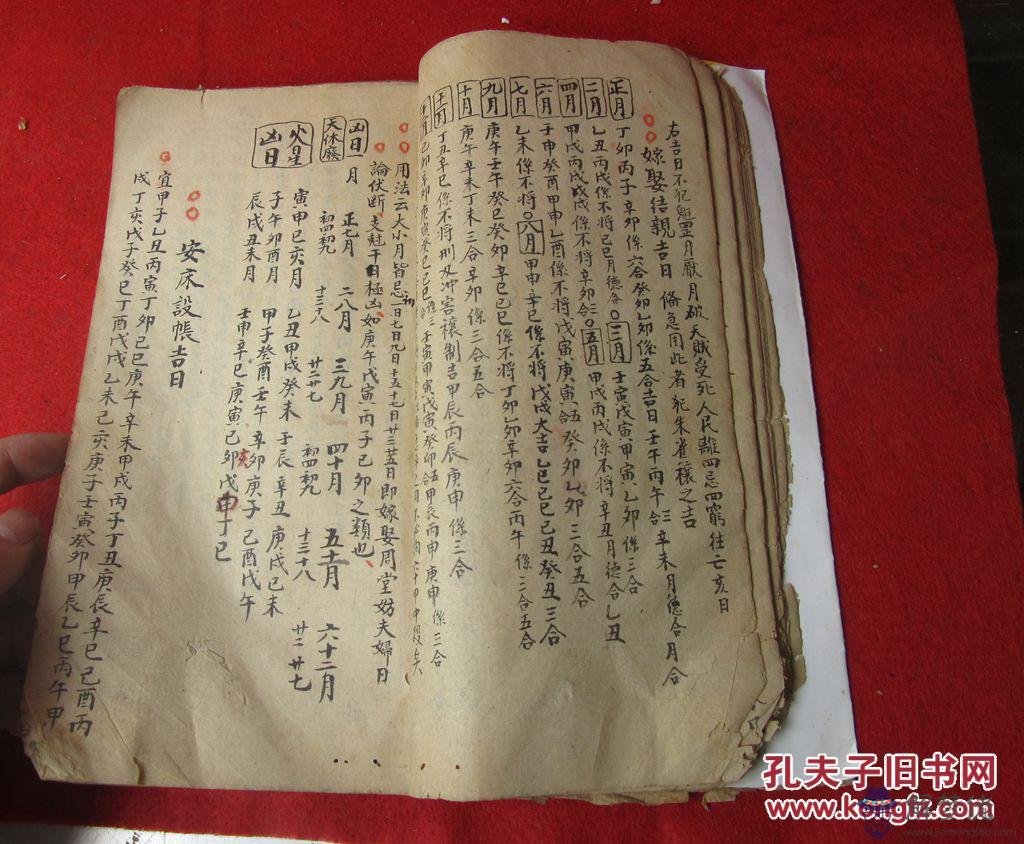 右吉日不犯魁罡月厭月破天賊受死人民離四忌四窮往亡亥日
嫁娶結親吉日 俻急用此者 犯朱雀穰之吉
正月 丁卯丙子辛卯係六合癸卯乙卯係五合吉日壬午丙午三合辛未月德合月合
二月 乙丑丙戌係不將己巳月德合○三月 壬寅戊寅甲寅乙卯係三合
四月 甲戌丙戌戊戌係不將辛卯三合○五月 甲戌丙戌係不將辛丑月德合乙丑
六月 壬申癸酉甲申乙酉係不將戊寅庚寅五合癸卯乙卯三合五合
七月 乙未係不將○八月 甲申辛巳係不將戊戌大吉乙巳己巳己丑癸丑三合
九月 庚午壬午癸巳癸卯辛巳己巳係不將丁卯乙卯辛卯六合丙午係三合五合
十月 庚午辛未丁未三合辛卯係三合五合
丁丑辛巳係不將刑及冲害穰制吉甲辰丙辰庚申係三合
壬寅甲寅戊寅癸卯五合甲辰丙申庚申係三合
用法云大小月皆忌初一日七日九日十五十七日廿三廿五日即嫁娶周堂妨夫婦日
論伏断支尅干日極凶如庚午戊寅丙子己卯之類也
凶日一月 正七月 二八月 三九月 四十月 五十一月 六十二月
天休廢 初四初九 十三十八 廿二廿七 初四初九 十三十八 廿二廿七
火星凶日 寅申巳亥月 乙丑甲戌癸未壬辰辛丑庚戌己未
子午卯酉月 甲子癸酉壬午辛卯庚子己酉戊午
辰戌丑未月 壬申辛巳庚寅己亥戊申丁巳
安床設帳吉日
宜甲子乙丑丙寅丁卯己巳庚午辛未甲戌丙子丁丑庚辰辛巳己酉丙
戌丁亥戊子癸巳丁酉戊戌乙未己亥庚子壬寅癸卯甲辰乙巳丙午甲
孔夫子旧书网
www.kongfz.com